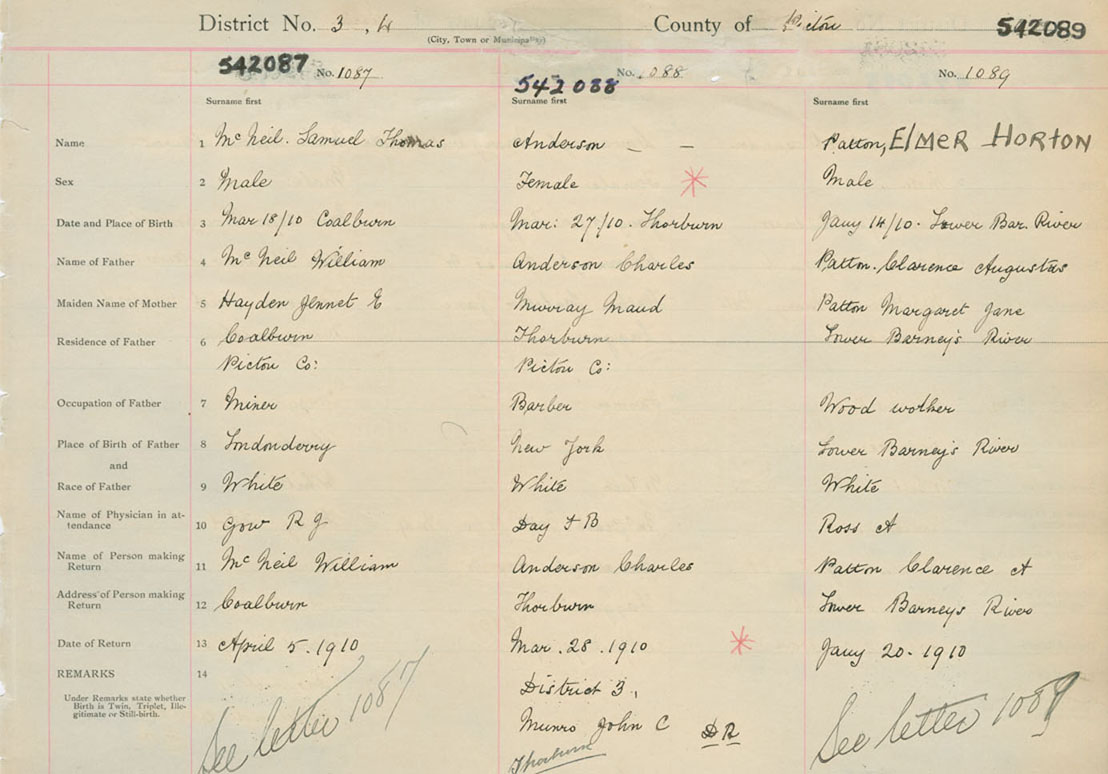 District No. 3, 4 County of Pictou 542089
(City, Town or Municipality)
542087 No. 1087 542088 No. 1088 No. 1089
Surname first Surname first Surname first
Name 1 McNeil. Samuel Thomas Anderson — — Patton, ELMER HORTON
Sex 2 Male Female Male
Date and Place of Birth 3 Mar 18/10 Coalburn Mar: 27/10. Thorburn Jany 14/10. Lower Bar. River
Name of Father 4 McNeil William Anderson Charles Patton. Clarence Augustus
Maiden Name of Mother 5 Hayden Jennet E Murray Maud Patton Margaret Jane
Residence of Father 6 Coalburn Thorburn Lower Barney's River
Pictou Co: Pictou Co:
Occupation of Father 7 Miner Barber Wood worker
Place of Birth of Father 8 Londonderry New York Lower Barney's River
and
Race of Father 9 White White White
Name of Physician in at-
tendance 10 Gow R J Day F B Ross A
Name of Person making
Return 11 McNeil William Anderson Charles Patton Clarence A
Address of Person making
Return 12 Coalburn Thorburn Lower Barneys River
Date of Return 13 April 5. 1910 Mar. 28. 1910 Jany 20. 1910
REMARKS 14 District 3,
Under Remarks state whether
Birth is Twin, Triplet, Ille-
gitimate or Still-birth.
See letter 1087 Munro John C DR See letter 1089
Thorburn